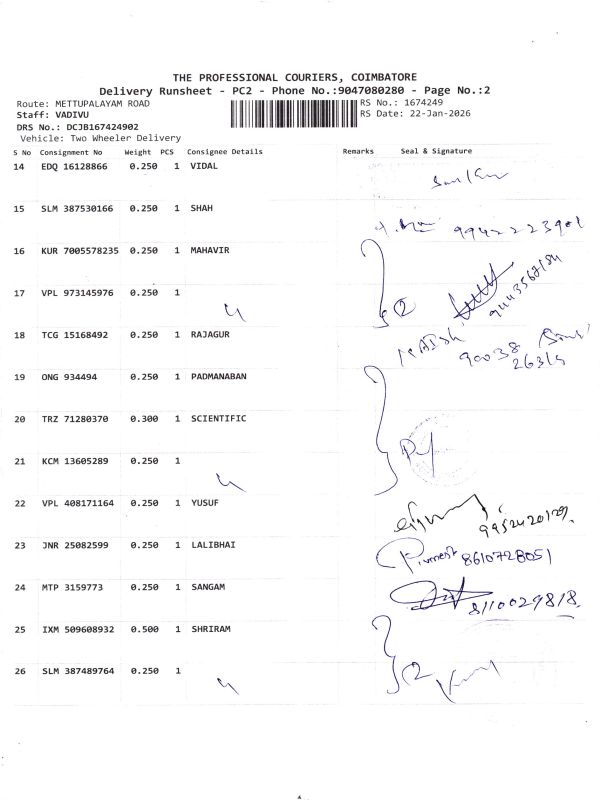 THE PROFESSIONAL COURIERS, COIMBATORE
Delivery Runsheet - PC2 - Phone No.:9047080280 - Page No.:2
Route: METTUPALAYAM ROAD
RS No.: 1674249
Staff: VADIVU
RS Date: 22-Jan-2026
DRS No.: DCJB167424902
Vehicle: Two Wheeler Delivery
S No Consignment No Weight PCS Consignee Details Remarks Seal & Signature
14 EDQ 16128866 0.250 1 VIDAL
15 SLM 387530166 0.250 1 SHAH
9942223901
16 KUR 7005578235 0.250 1 MAHAVIR
17 VPL 973145976 0.250 1
2
18 TCG 15168492 0.250 1 RAJAGUR
90038
26315
19 ONG 934494 0.250 1 PADMANABAN
20 TRZ 71280370 0.300 1 SCIENTIFIC
21 KCM 13605289 0.250 1
22 VPL 408171164 0.250 1 YUSUF
9952420129
23 JNR 25082599 0.250 1 LALIBHAI
8610728051
24 MTP 3159773 0.250 1 SANGAM
8110029818
25 IXM 509608932 0.500 1 SHRIRAM
26 SLM 387489764 0.250 1
2